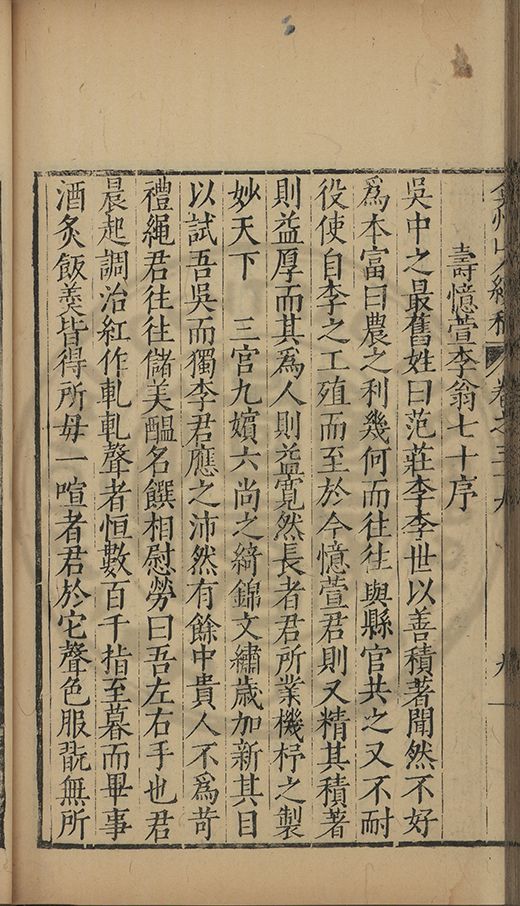 弇州山人續稿 卷之三十九
壽憶萱李翁七十序
吳中之最舊姓曰范莊李李世以善積著聞然不好
爲本富曰農之利幾何而往往與縣官共之又不耐
役使自李之工殖而至於今憶萱君則又精其積著
則益厚而其爲人則益寬然長者君所業機杼之製
妙天下　三官九嬪六尚之綺錦文繡歲加新其目
以試吾吳而獨李君應之沛然有餘中貴人不爲苛
禮繩君往往儲美醞名饌相慰勞曰吾左右手也君
晨起調治紅作軋軋聲者恒數百千指至暮而畢事
酒炙飯羮皆得所毋一喧者君於它聲色服翫無所